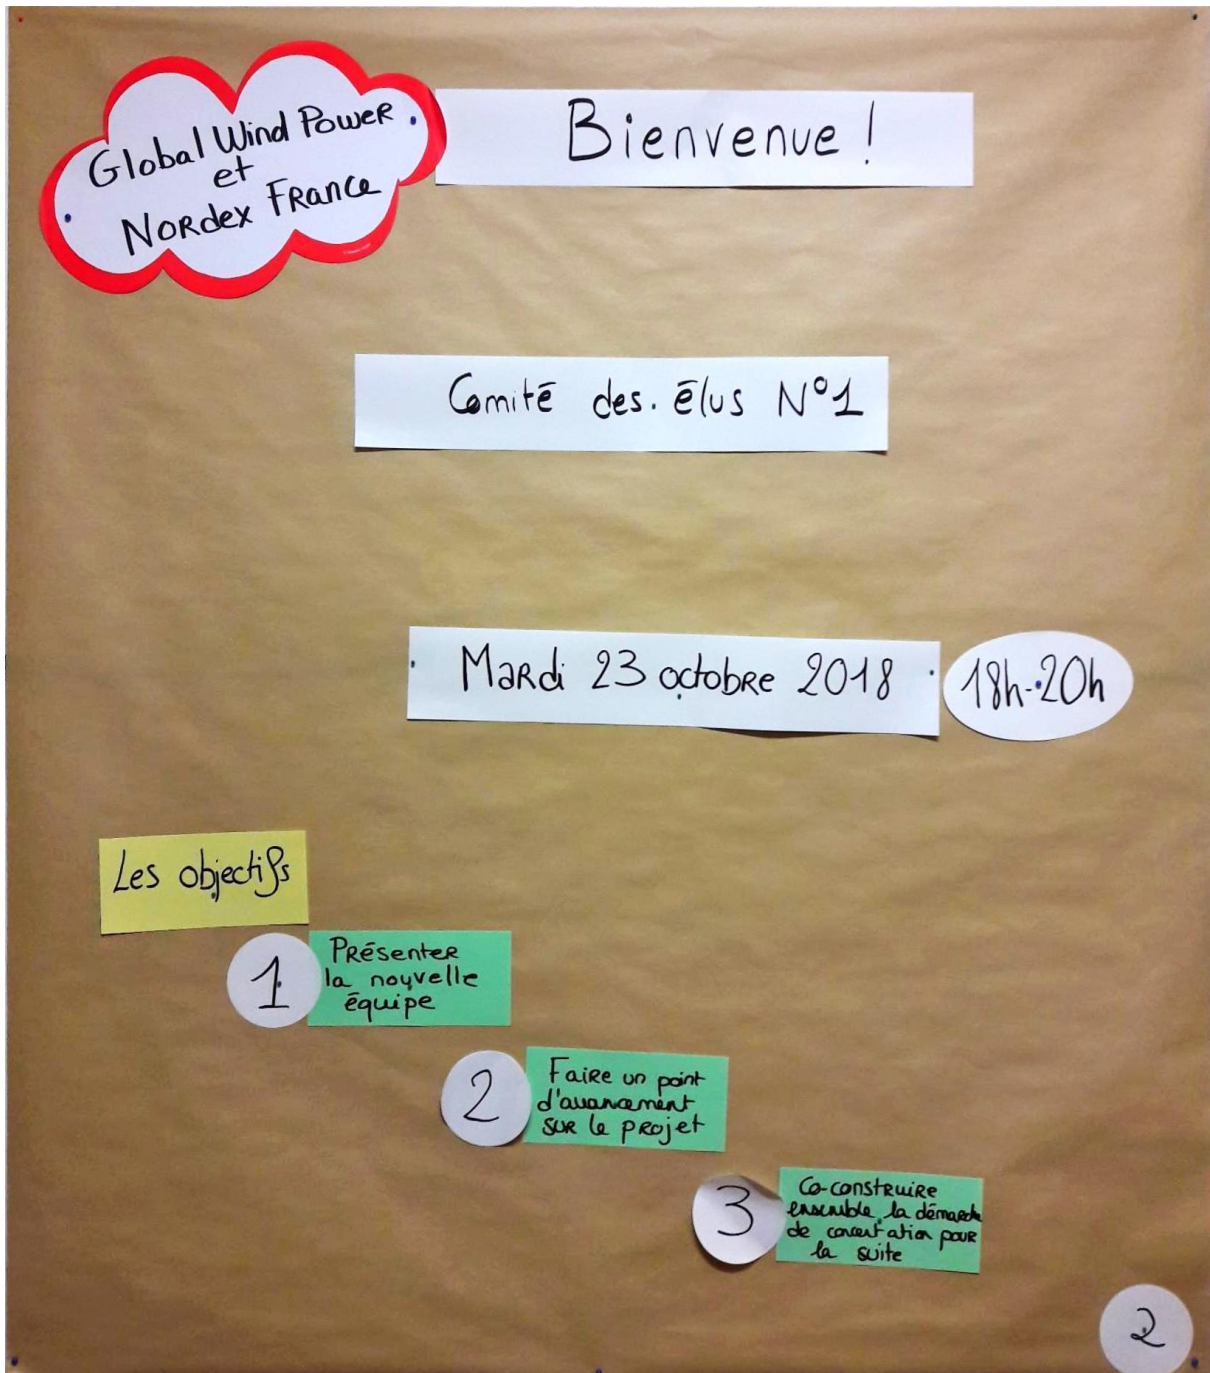 Global Wind Power
et
Nordex France
Bienvenue !
Comité des. élus N°1
Mardi 23 octobre 2018
18h-20h
Les objectifs
1
Présenter
la nouvelle
équipe
2
Faire un point
d'avancement
sur le projet
3
Co-construire
ensemble la démarche
de concertation pour
la suite
2